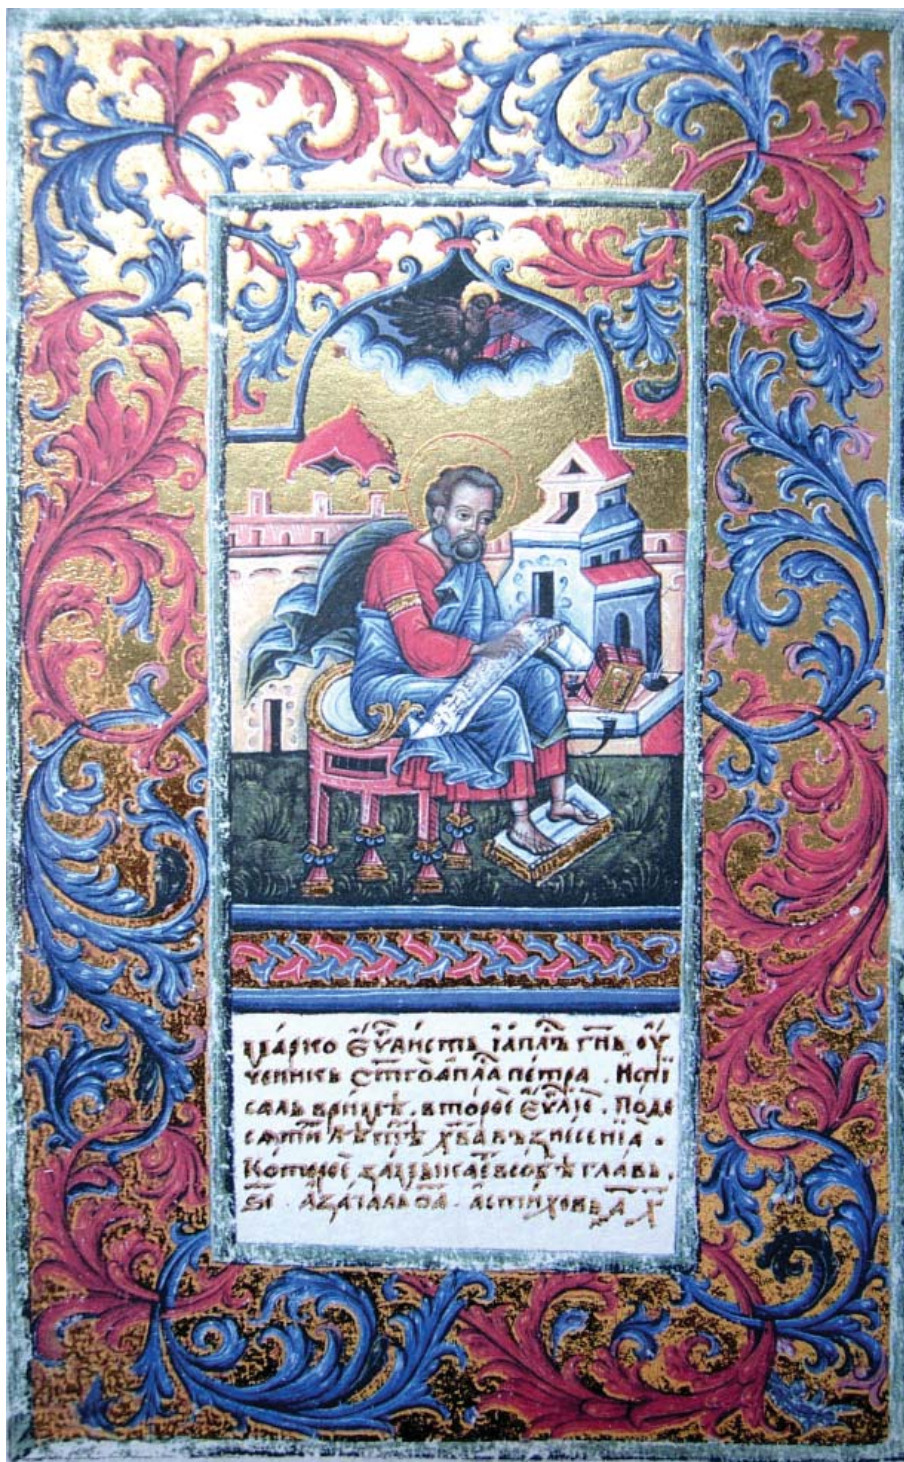 Марко еѵ҃листъ і ап҃лъ гн҃ь оу
ченикъ ст҃го ап҃ла петра . Испи
салъ в римѣ . второе еѵ҃лїе . По де
сѧти лѣтѣ хв҃а възнесенїа .
Которое в собѣ главъ .
а зачалъ о҃а . а стихов ҂а х҃